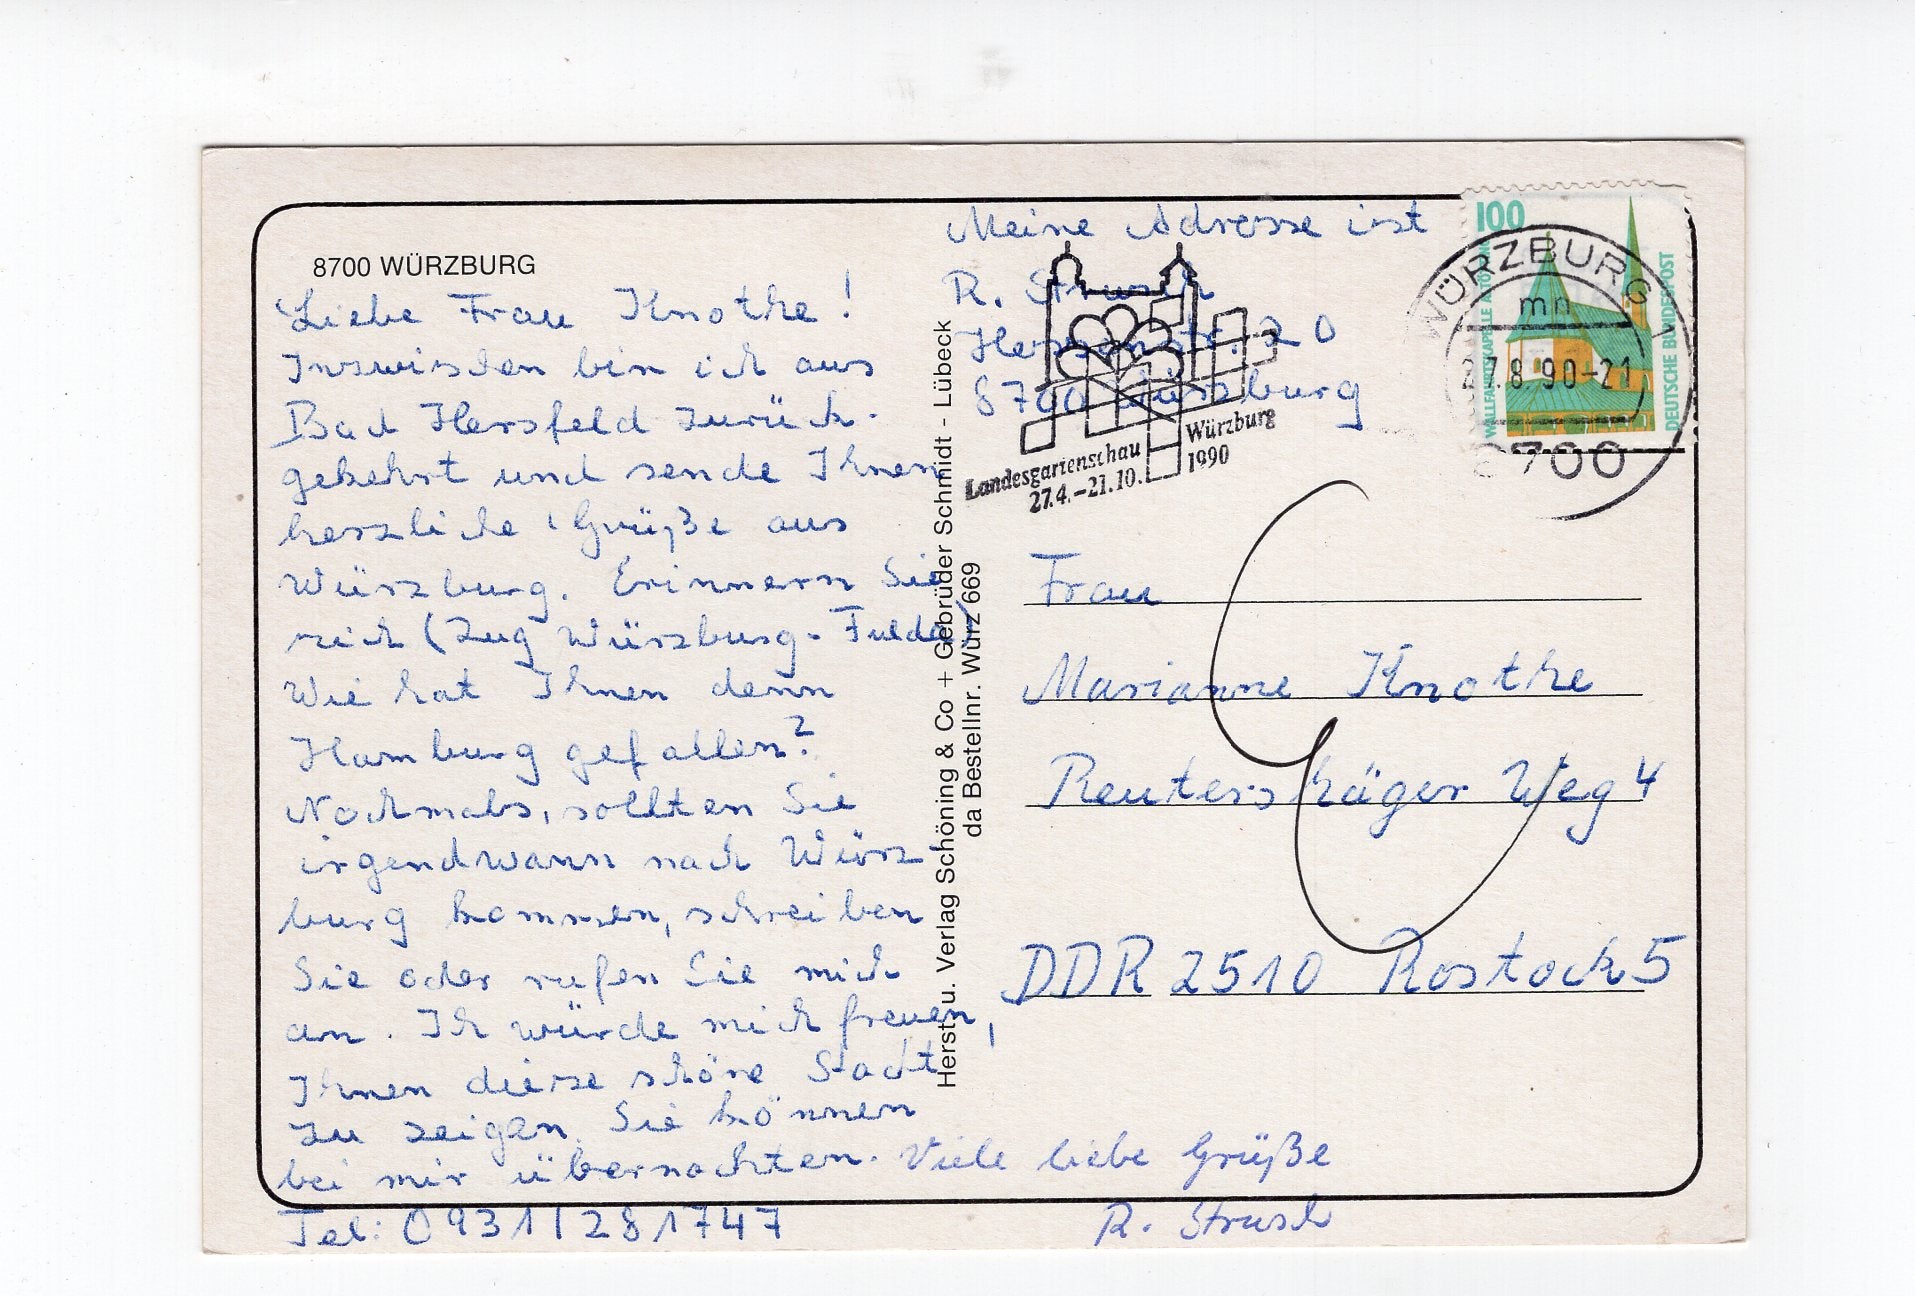 8700 WÜRZBURG
Liebe Frau Knothe!
Inzwischen bin ich aus
Bad Hersfeld zurück-
gekehrt und sende Ihnen
herzliche Grüße aus
Würzburg. Erinnern Sie
sich (Zug Würzburg-Fulda)
Wie hat Ihnen denn
Hamburg gefallen?
Nochmals, sollten Sie
irgendwann nach Würz-
burg kommen, schreiben
Sie oder rufen Sie mich
an. Ich würde mich freuen,
Ihnen diese schöne Stadt
zu zeigen. Sie können
bei mir übernachten. Viele liebe Grüße
Tel: 0931/281747 R. Strusch
Herst. u. Verlag Schöning & Co + Gebrüder Schmidt - Lübeck
da Bestellnr. Würz 669
Meine Adresse ist
R. Strusch
20
8700 Würzburg
Landesgartenschau Würzburg
27.4.-21.10. 1990
100
WALLFAHRTSKAPELLE ALTÖTTING
DEUTSCHE BUNDESPOST
WÜRZBURG 1
mn
27.8.90-21
8700
Frau
Marianne Knothe
Reutershäger Weg 4
DDR 2510 Rostock 5